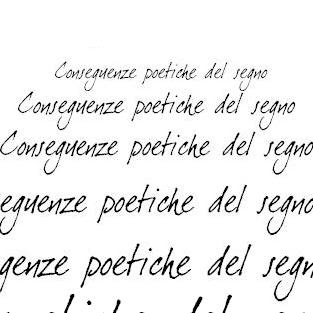 Conseguenze poetiche del segno
Conseguenze poetiche del segno
Conseguenze poetiche del segno
eguenze poetiche del segno
genze poetiche del segn